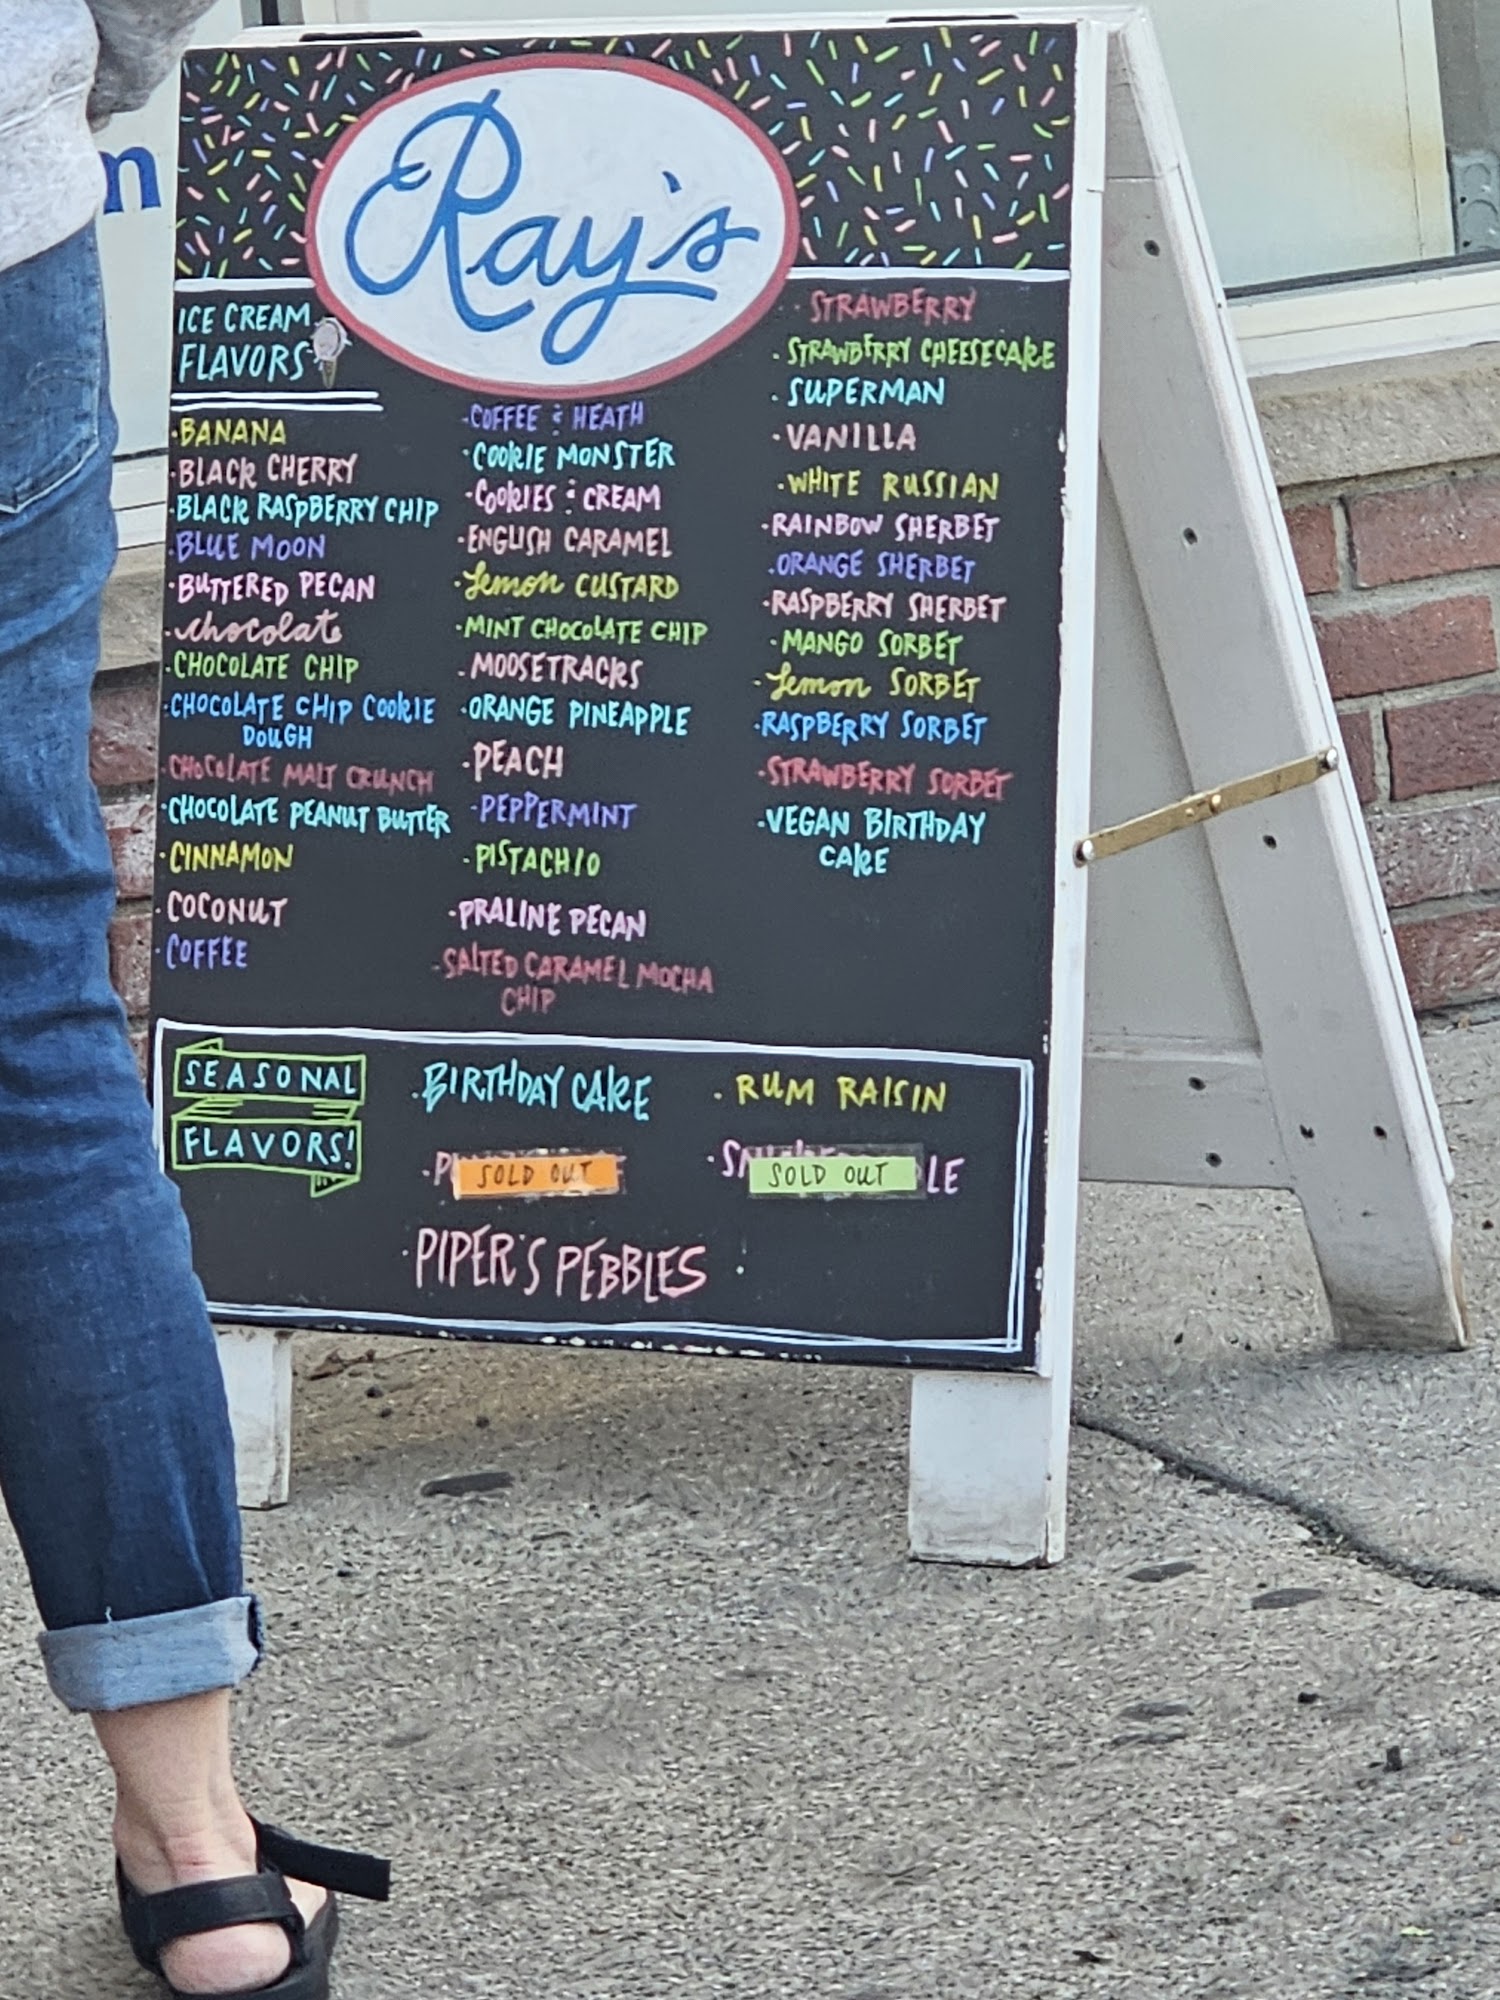 m
Ray's
ICE CREAM
FLAVORS
·BANANA
·BLACK CHERRY
·BLACK RASPBERRY CHIP
·BLUE MOON
·BUTTERED PECAN
·chocolate
·CHOCOLATE CHIP
·CHOCOLATE CHIP COOKIE
DOUGH
·CHOCOLATE MALT CRUNCH
·CHOCOLATE PEANUT BUTTER
·CINNAMON
·COCONUT
·COFFEE
·COFFEE & HEATH
·COOKIE MONSTER
·COOKIES & CREAM
·ENGLISH CARAMEL
·Lemon CUSTARD
·MINT CHOCOLATE CHIP
·MOOSETRACKS
·ORANGE PINEAPPLE
·PEACH
·PEPPERMINT
·PISTACHIO
·PRALINE PECAN
·SALTED CARAMEL MOCHA
CHIP
·STRAWBERRY
·STRAWBERRY CHEESECAKE
·SUPERMAN
·VANILLA
·WHITE RUSSIAN
·RAINBOW SHERBET
·ORANGE SHERBET
·RASPBERRY SHERBET
·MANGO SORBET
·Lemon SORBET
·RASPBERRY SORBET
·STRAWBERRY SORBET
·VEGAN BIRTHDAY
CAKE
SEASONAL
FLAVORS!
·BIRTHDAY CAKE
·RUM RAISIN
SOLD OUT
SOLD OUT
·PIPER'S PEBBLES ·